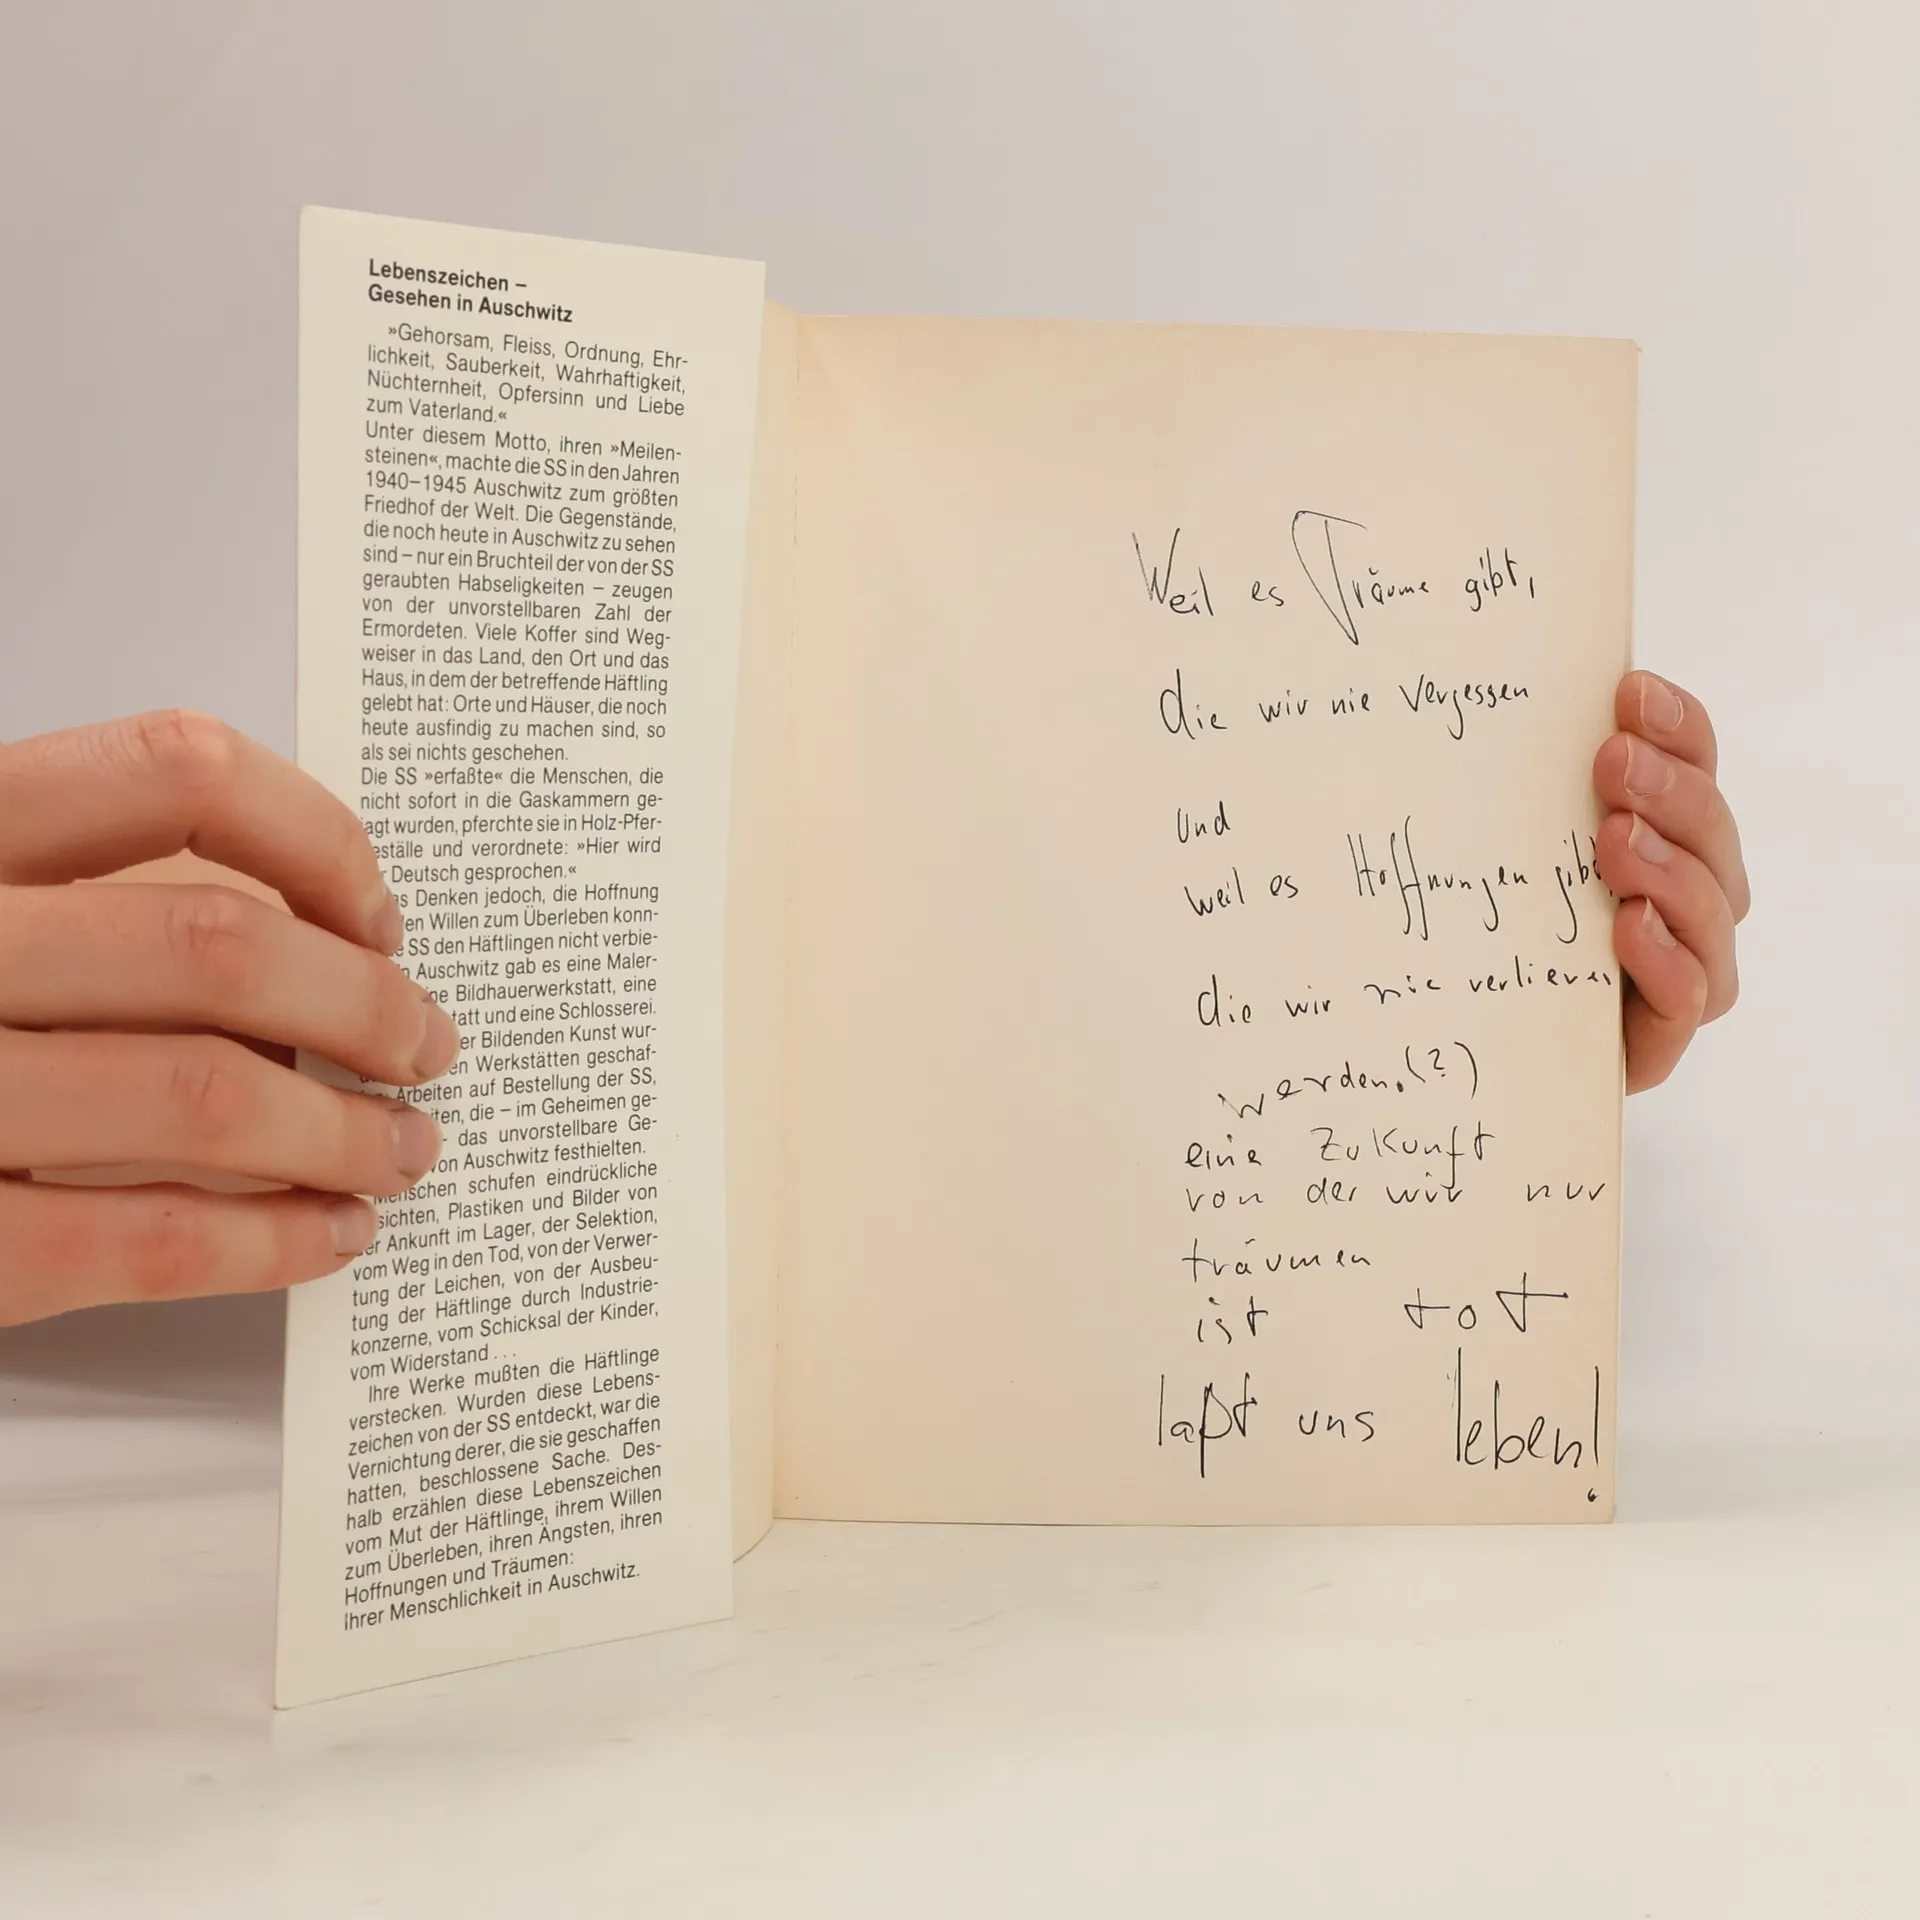 Lebenszeichen –
Gesehen in Auschwitz
»Gehorsam, Fleiss, Ordnung, Ehr-
lichkeit, Sauberkeit, Wahrhaftigkeit,
Nüchternheit, Opfersinn und Liebe
zum Vaterland.«
Unter diesem Motto, ihren »Meilen-
steinen«, machte die SS in den Jahren
1940–1945 Auschwitz zum größten
Friedhof der Welt. Die Gegenstände,
die noch heute in Auschwitz zu sehen
sind – nur ein Bruchteil der von der SS
geraubten Habseligkeiten – zeugen
von der unvorstellbaren Zahl der
Ermordeten. Viele Koffer sind Weg-
weiser in das Land, den Ort und das
Haus, in dem der betreffende Häftling
gelebt hat: Orte und Häuser, die noch
heute ausfindig zu machen sind, so
als sei nichts geschehen.
Die SS »erfaßte« die Menschen, die
nicht sofort in die Gaskammern ge-
jagt wurden, pferchte sie in Holz-Pfer-
eställe und verordnete: »Hier wird
r Deutsch gesprochen.«
s Denken jedoch, die Hoffnung
en Willen zum Überleben konn-
e SS den Häftlingen nicht verbie-
n Auschwitz gab es eine Maler-
ne Bildhauerwerkstatt, eine
tatt und eine Schlosserei.
er Bildenden Kunst wur-
en Werkstätten geschaf-
Arbeiten auf Bestellung der SS,
iten, die – im Geheimen ge-
- das unvorstellbare Ge-
von Auschwitz festhielten.
Menschen schufen eindrückliche
sichten, Plastiken und Bilder von
er Ankunft im Lager, der Selektion,
vom Weg in den Tod, von der Verwer-
tung der Leichen, von der Ausbeu-
tung der Häftlinge durch Industrie-
konzerne, vom Schicksal der Kinder,
vom Widerstand . . .
Ihre Werke mußten die Häftlinge
verstecken. Wurden diese Lebens-
zeichen von der SS entdeckt, war die
Vernichtung derer, die sie geschaffen
hatten, beschlossene Sache. Des-
halb erzählen diese Lebenszeichen
vom Mut der Häftlinge, ihrem Willen
zum Überleben, ihren Ängsten, ihren
Hoffnungen und Träumen:
Ihrer Menschlichkeit in Auschwitz.
Weil es Träume gibt,
die wir nie vergessen
und
weil es Hoffnungen gibt,
die wir nie verlieren
werden.(?)
eine Zukunft
von der wir nur
träumen
ist tot
laßt uns leben!